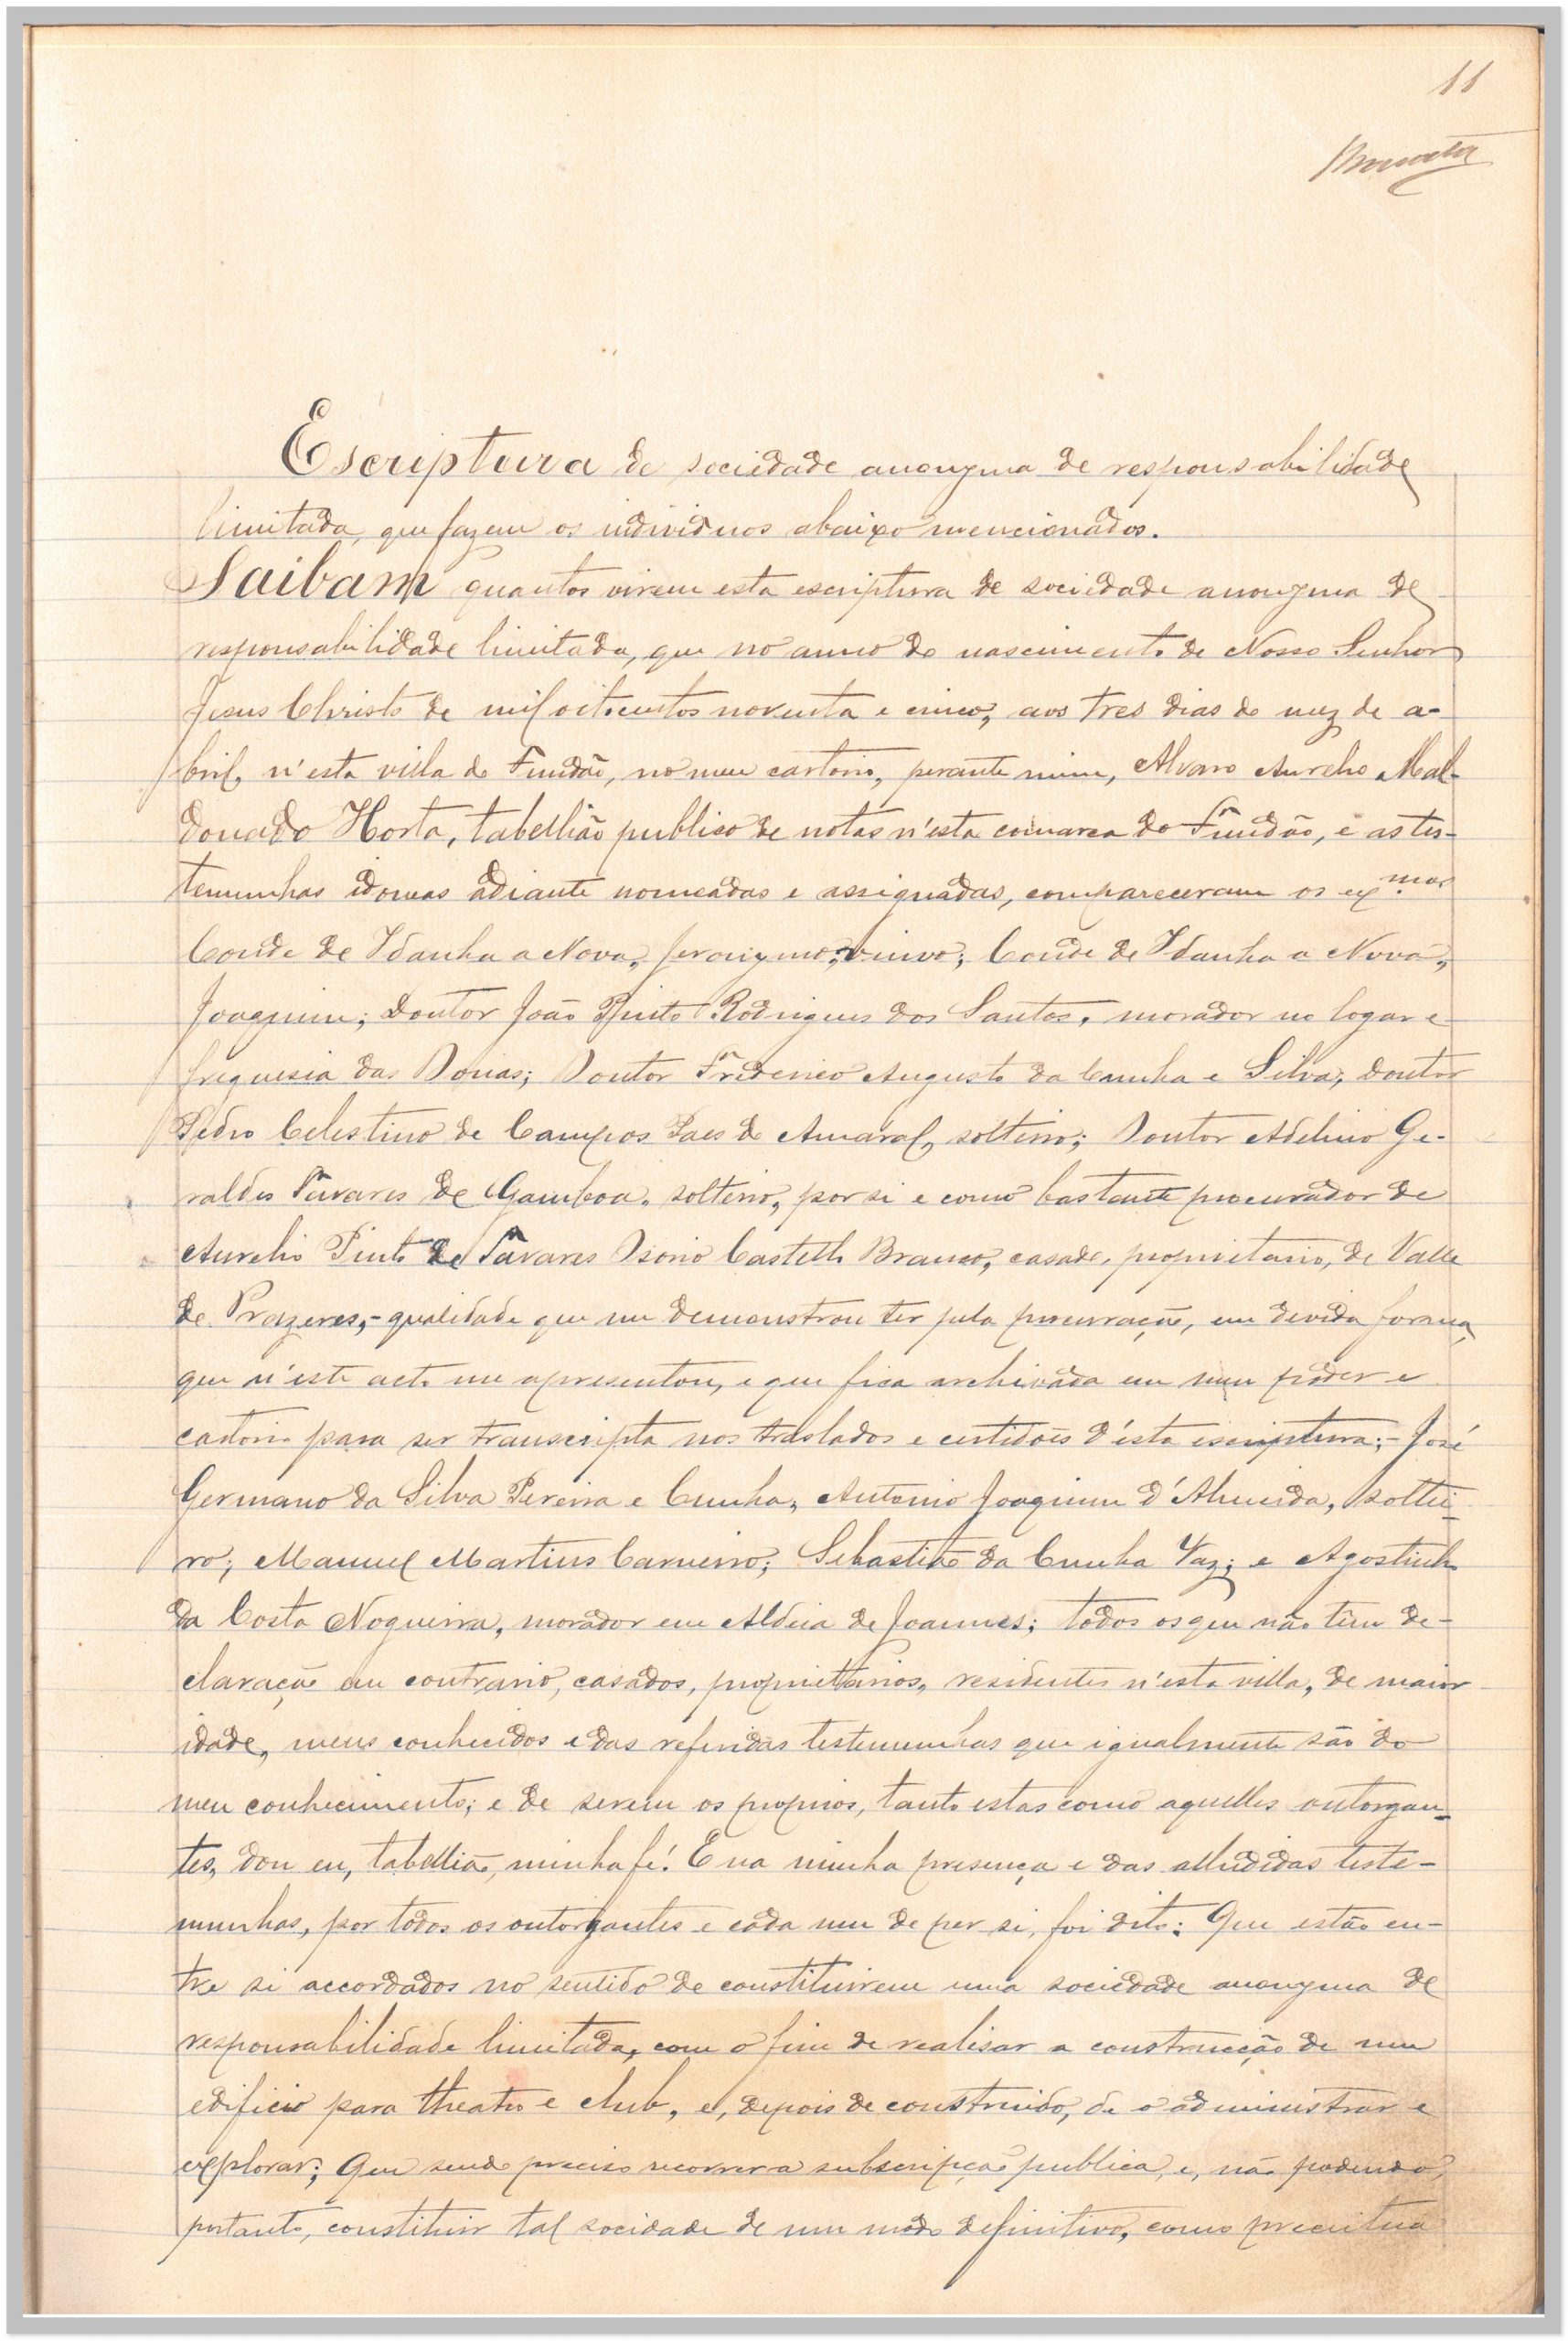 11
Escriptura de sociedade anonyma de responsabilidade
limitada, que fazem os individuos abaixo mencionados.
Saibam quantos virem esta escriptura de sociedade anonyma de
responsabilidade limitada, que no anno do nascimento de Nosso Senhor
Jesus Christo de mil oitocentos noventa e cinco, aos tres dias do mez de a-
bril, n'esta villa do Fundão, no meu cartorio, perante mim, Alvaro Aurelio Mal-
donado Horta, tabellião publico de notas n'esta comarca do Fundão, e as tes-
temunhas idoneas adiante nomeadas e assignadas, compareceram os exmos
Conde de Idanha a Nova, Jeronymo, viuvo; Conde de Idanha a Nova,
Joaquim; Doutor João Pinto Rodrigues dos Santos, morador no logar e
freguesia das Donas; Doutor Frederico Augusto da Cunha e Silva; Doutor
Pedro Celestino de Campos Paes do Amaral, solteiro; Doutor Adelino Ge-
raldes Tavares de Gamboa, solteiro, por si e como bastante procurador de
Aurelio Pinto de Tavares Osorio Castello Branco, casado, proprietario, de Valle
de Prazeres,- qualidade que me demonstrou ter pela procuração, em devida forma,
que n'este acto me apresentou, e que fica archivada em meu poder e
cartorio para ser transcripta nos traslados e certidões d'esta escriptura;- José
Germano da Silva Pereira e Cunha, Antonio Joaquim d'Almeida, soltei-
ro; Manuel Martins Carneiro; Sebastião da Cunha Vaz; e Agostinho
da Costa Nogueira, morador em Aldeia de Joannes; todos os que não têm de-
claração em contrario, casados, proprietarios, residentes n'esta villa, de maior
idade, meus conhecidos e das referidas testemunhas que igualmente são do
meu conhecimento; e de serem os proprios, tanto estas como aquelles outorgan-
tes, dou eu, tabellião, minha fé. E na minha presença e das alludidas teste-
munhas, por todos os outorgantes e cada um de per si, foi dito: Que estão en-
tre si accordados no sentido de constituirem uma sociedade anonyma de
responsabilidade limitada, com o fim de realisar a construcção de um
edificio para theatro e club, e, depois de construido, de o administrar e
explorar; Que sendo preciso recorrer a subscripção publica, e, não podendo,
portanto, constituir tal sociedade de um modo definitivo, como preceitua